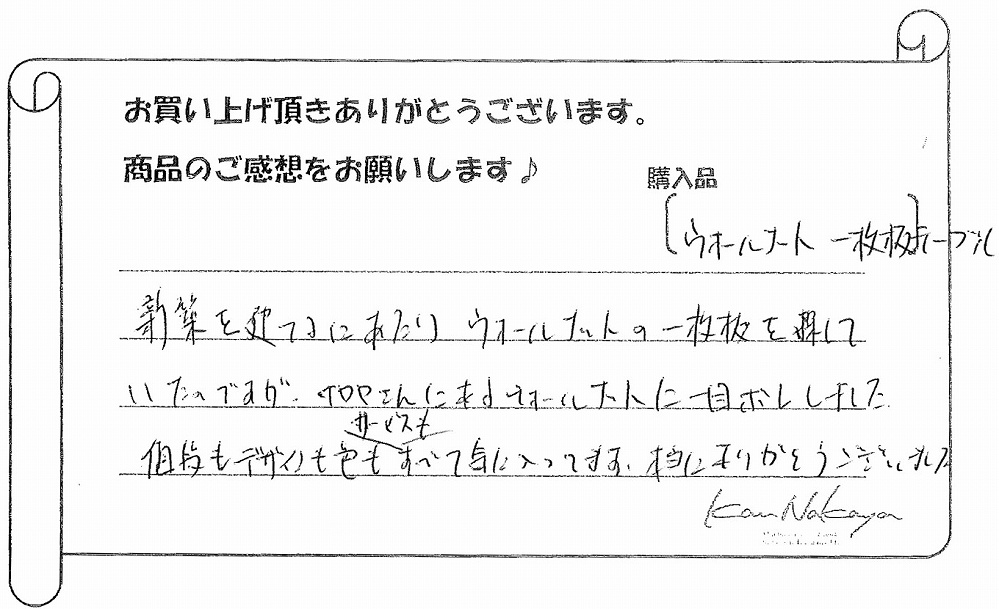 お買い上げ頂きありがとうございます。
商品のご感想をお願いします♪
購入品
[ウォールナット 一枚板テーブル]
新築を建てるにあたり ウォールナットの一枚板を探して
いたのですが、さんにあるウォールナットに一目ボレしました
サービスも
値段もデザインも色もすべて気に入ってます。本当にありがとうございました
Kan Nakaya